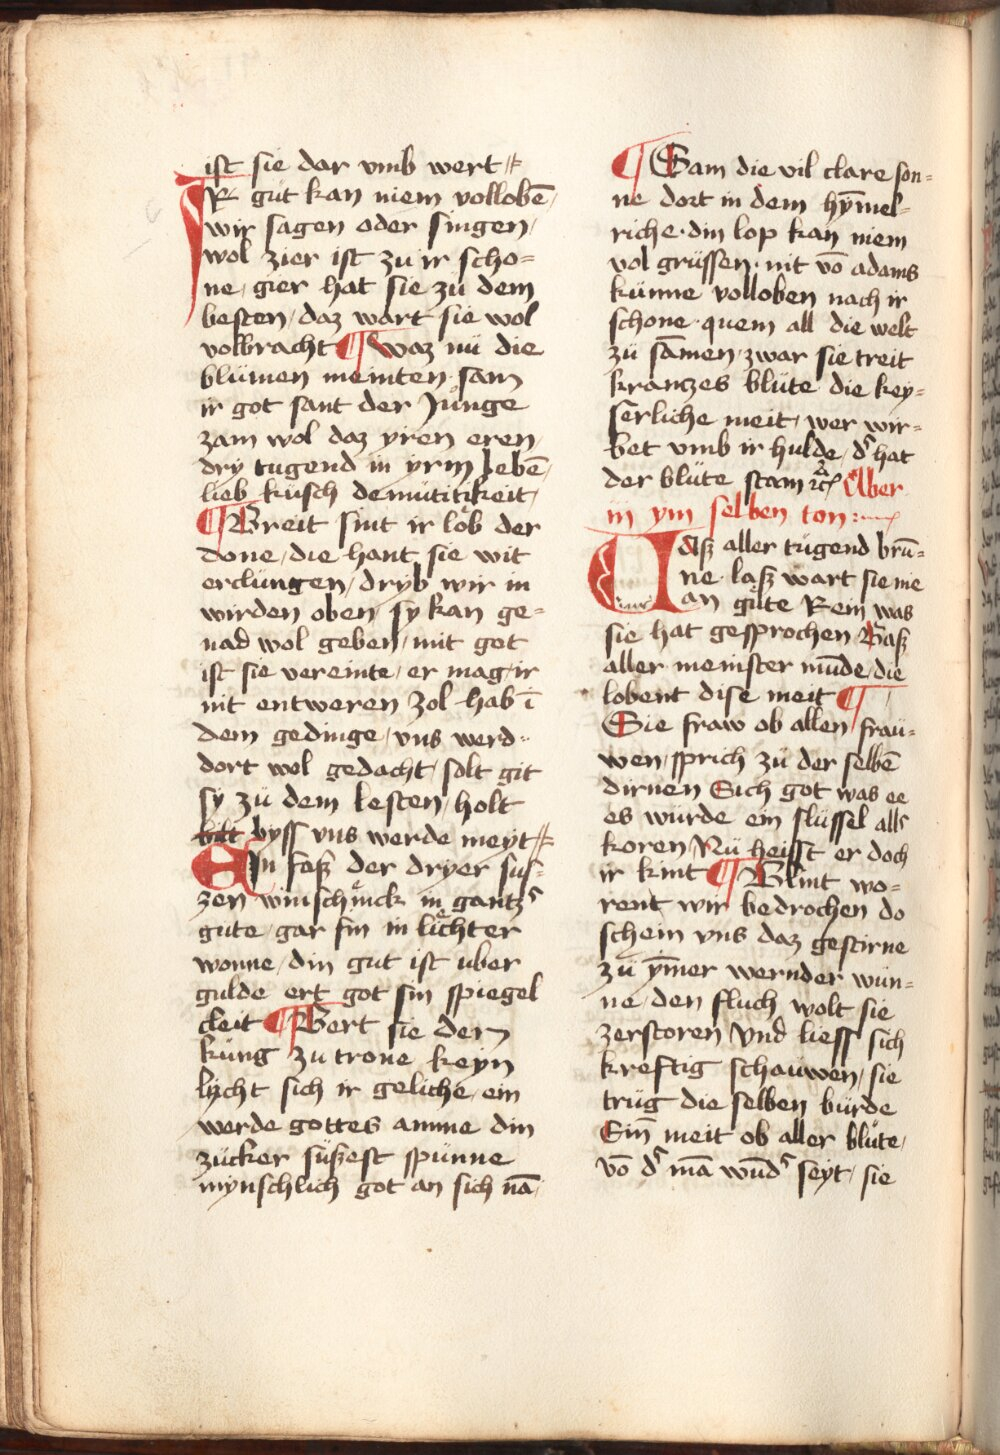 ist sie dar vmb wert
IR gůt kan niem vollobē
wir sagen oder singen
wol zier ist zu ir scho=
ne, gier hat sie zů dem
besten, daz wart sie wol
volbracht ¶ Waz nů die
blůmen meinten sam
ir got sant der Jůnge
zam wol daz yren eren
dry tugend in yrm lebē
lieb kůsch demůtitikeit
¶ Breit sint ir lob der
done, die hant sie wit
erclůngen, dryb wir in
wirden oben sy kan ge=
nad wol geben, mit got
ist sie vereinte, er mag ir
nit entweren Zol hab ī
dem gedinge, vns werd
dort wol gedacht, solt git
sy zů dem lesten, holt
bilt byss vns werde meyt
EIn fasz der dryer sůs=
zen winschenck in gantz
gute gar fin in liechter
wonne, din gut ist uber
gulde ert got sin spiegel
cleit ¶ Wert sie dem
kůng zu trone keyn
lycht sich ir geliche, ein
werde gottes amme din
zůcker sůszest spůnne
mynschlich got an sich nā
¶ Sam die vil clare son=
ne dort in dem hȳmel=
riche. din lop kan niem
vol grůssen. nit vō adams
kůnne volloben nach ir
schone. quem all die welt
zů sāmen, zwar sie treit
krantzes blůte die key=
serliche meit, wer wir=
bet vmb ir hulde, dʼ hat
der blůte stam rc̄ Aber
in ym selben ton :
Dasz aller tůgend brū=
ne. lasz wart sie nie
an gůte Rein was
sie hat gesprochen Basz
aller meinster mūde, die
lobent dise meit ¶
Sie fraw ob allen frau=
wen, sprich zů der selbē
dirnen Sich got was ee
es wůrde ein slůssel allʼ
koren Nů heisst er doch
ir kint ¶ Blint wo=
rent wir bedrochen do
schein vns daz gestirne
zů ȳmer wernder wůn=
ne, den fluch wolt sie
zerstoren Vnd liess sich
kreftig schauwen, sie
trůg die selben bůrde
Ein meit ob aller blůte,
vō dʼ mā wūdʼ seyt, sie